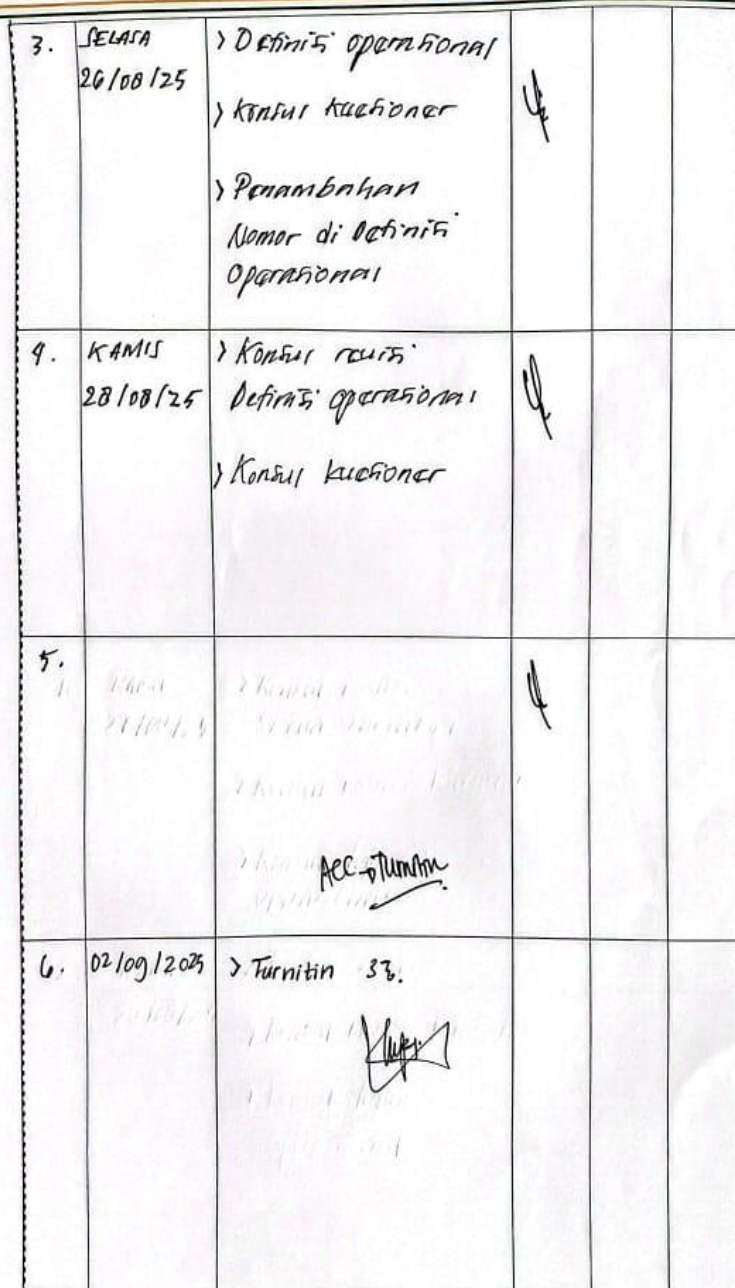 3. SELASA > Definisi operasional
26/08/25
> Konsul kuesioner
> Penambahan
Nomor di Definisi
Operasional
4. KAMIS > Konsul revisi
28/08/25 Definisi operasional
> Konsul kuesioner
5.
ACC → Turnitin
6. 02/09/2025 > Turnitin 3%.